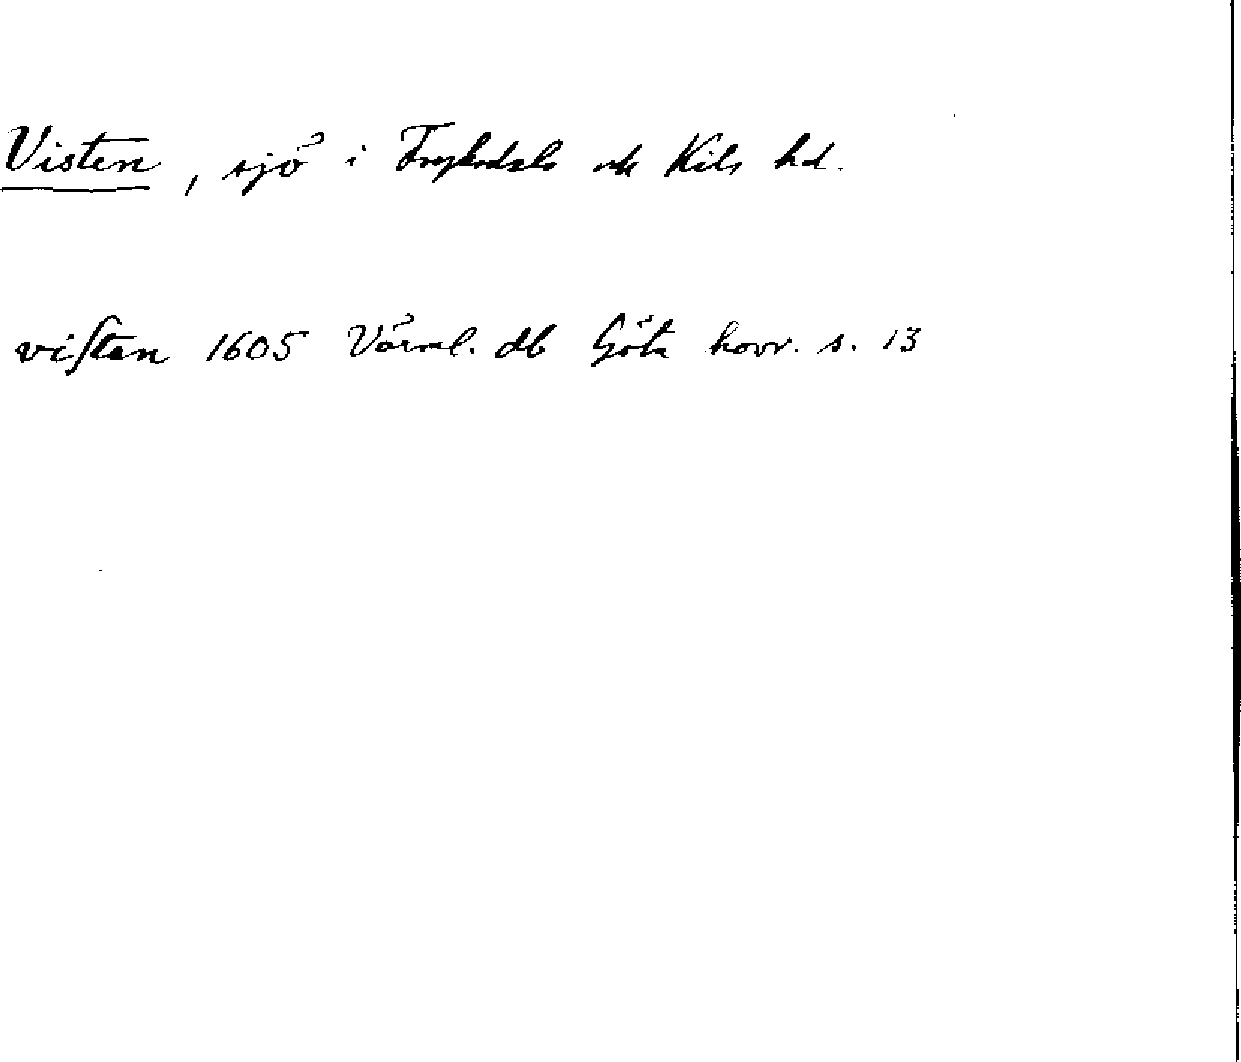 Visten, sjö i Fryksdals ok Kils hd.
viſten 1605 Värml. db Göta hovr. s. 13